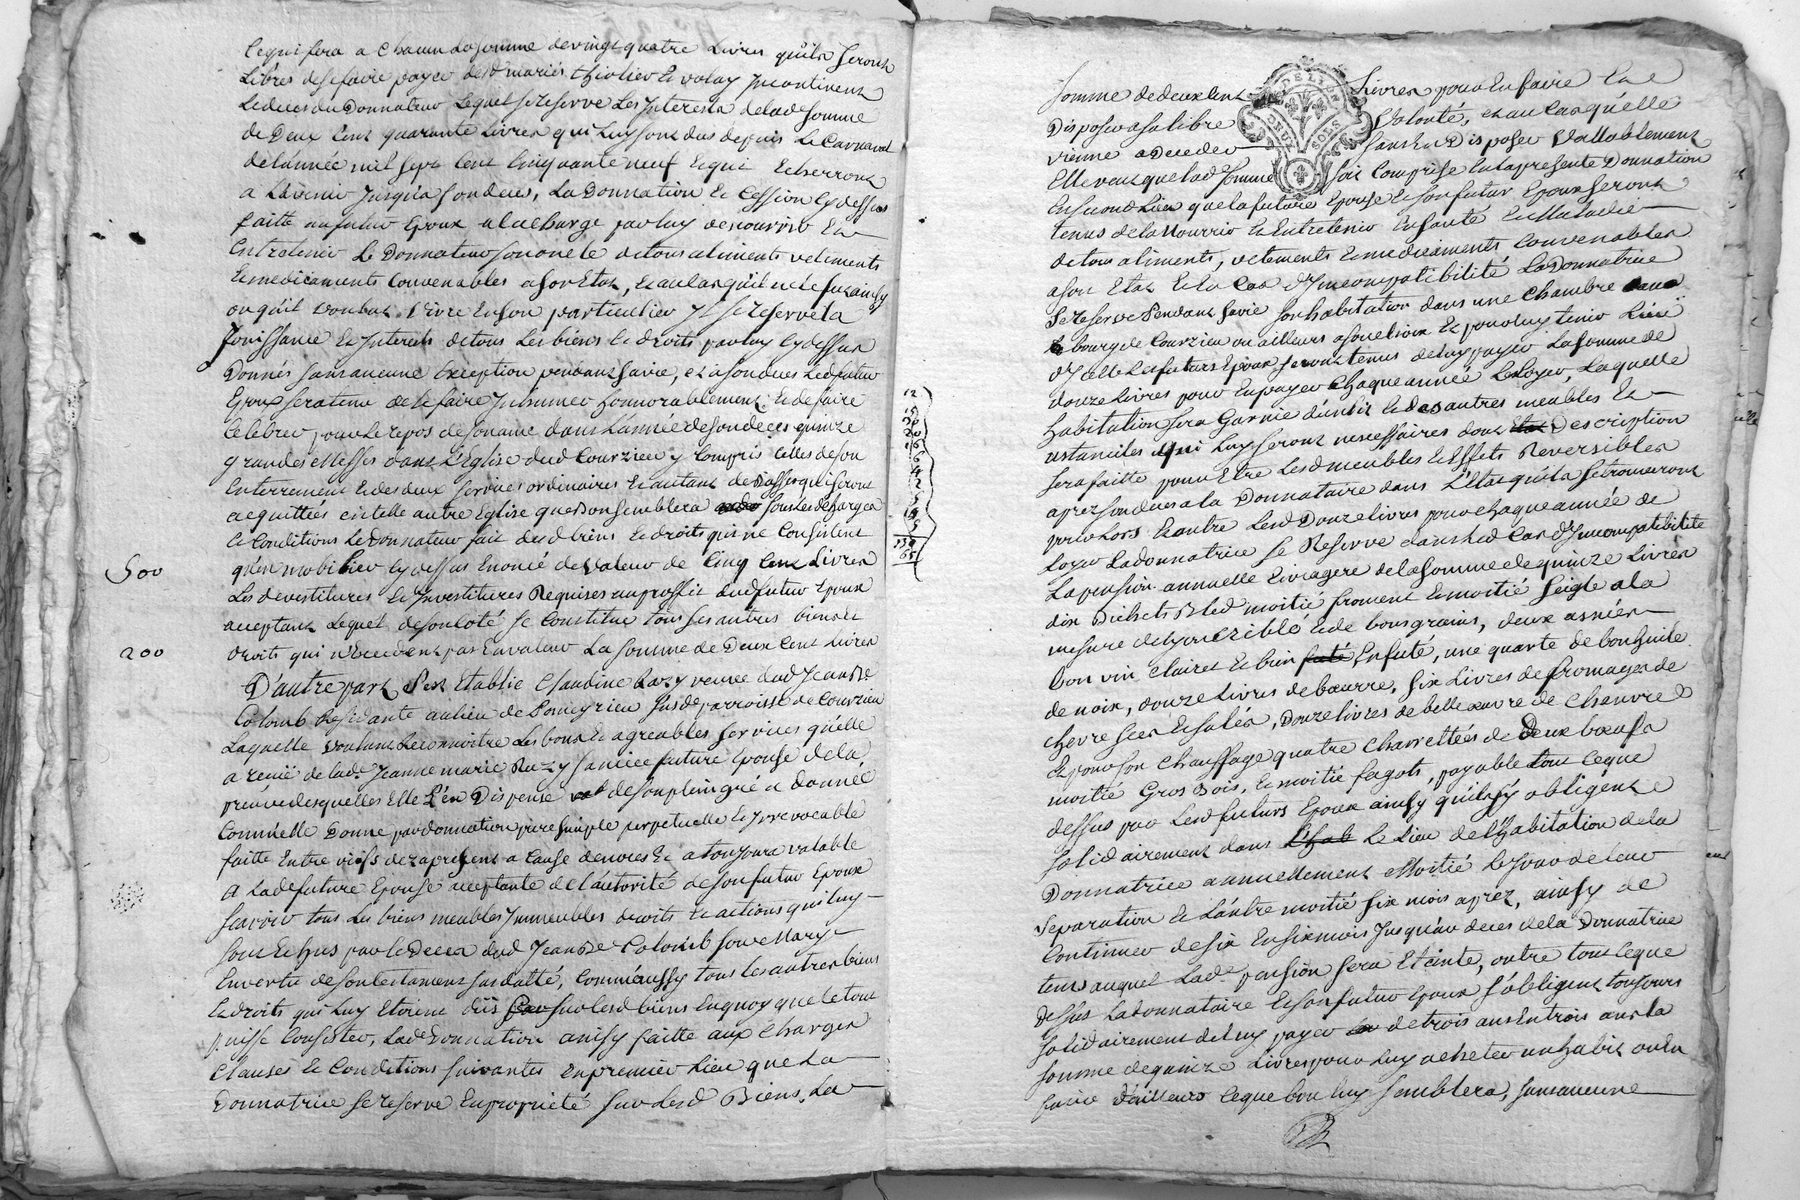 cequi fera a Chacun la somme devingt quatre Livres quils seront
Libres de se faire payer desd mariés thiolier et volay Incontinent
ledeces du Donnateur Lequel se reserve Les Interests delade somme
de Deux Cent quarante Livres qui luy sont dus depuis Le Carnaval
delannée mil sept Cent Cinquante neuf et qui Echerront
a Lavenir Jusqua son deces, La Donnation et Cession Cydessus
faitte au futur Epoux alacharge par luy denourrir Et
Entretenir Le Donnateur son oncle detous aliments vetements
et medicaments Convenables a son Etat, et au Cas quil ne le fut ainsy
ou quil voulut vivre En son particulier Il se reserve la
Jouissance et Interets detous Les biens et droits par luy Cydessus
Donnés sans aucune Exception pendant sa vie, et a son deces led futur
Epoux sera tenu de le faire Inhumer honnorablement et de faire
Celebrer pour Le repos de son ame dans Lannée de son deces quinze
grandes Messes dans L'Eglise dud Courzieu y Compris Celles de son
Enterrement et des deux services ordinaires et autant de Basses qui seront
acquittées en telle autre Eglise que Bon semblera sous Les de Charges
et Conditions Le Donnateur fait dud biens et droits qui ne Consistent
500 qu'en mobilier Cydessus Enoncé de valeur de Cinq Cent Livres
Les devestitures et Investitures Requises au proffit dud futur Epoux
acceptant Lequel de son Coté se Constitue tous ses autres biens et
200 droits qui n'Excedent pas En valeur La somme de Deux Cent Livres
D'autre part s'est Etablie Claudine Razy veuve dud Jean Bte
Colomb Residante au lieu de Pomeyrieu susde parroisse de Courzieu
Laquelle voulant Reconnoitre Les bons et agreables services qu'elle
a reçus de lade Jeanne marie Razy sa niece future Epouse de la
preuve desquelles Elle L'en Dispense de son plein gré a donné
Comm'elle Donne par donnation pure simple perpetuelle et Irrevocable
faitte Entre vifs dez a present a Cause de noces et a toujours valable
A Lade future Epouse acceptante de l'autorité de son futur Epoux
scavoir tous Les biens meubles Immeubles droits et actions qui luy
sont Echus par le Deces dud Jean Bte Colomb son Mary
En vertu de son testament susdatté, Comm'aussy tous les autres biens
et droits qui Luy Etoient dus sur lesd biens En quoy que le tout
puisse Consister, Lade Donnation ainsy faitte aux Charges
Clauses et Conditions suivantes En premier Lieu que La
Donnatrice se reserve En proprieté sur Lesd Biens La
12
15
30
20
16
6
4
2
5
15
5
130
65
GEN. DE LION
DEUX SOLS
somme de deux Cent Livres pour En faire Et
Disposer a sa libre volonté, et au Cas qu'elle
vienne a Deceder sans En Disposer Vallablement
Elle veut que lad somme soit Comprise En la presente Donnation
En second Lieu que la future Epouse et son futur Epoux seront
tenus de la Nourrir et Entretenir En santé et Maladie
de tous aliments, vetements et medicaments Convenables
a son Etat et En Cas d'Incompatibilité La Donnatrice
se reserve Pendant sa vie son habitation dans une Chambre
bourg de Courzieu ou ailleurs a son choix Et pour luy tenir Lieu
d'Icelle Les futurs Epoux seront tenus de luy payer La somme de
douze Livres pour En payer Chaque année Le Loyer, Laquelle
habitation sera Garnie d'un lit et des autres meubles Et
ustancilles qui Luy seront necessaires dont Description
sera faitte pour Etre Lesd meubles et Effets Reversibles
apres son deces a la Donnataire dans L'Etat qu'ils se trouveront
pour Lors Et outre Lesd Douze livres pour Chaque année de
Loyer La donnatrice se Reserve dans led Cas d'Incompatibilité
La pension annuelle et viagere de la somme de quinze Livres
dix Bichets Bled moitié froment et moitié seigle a la
mesure de Lyon criblé et de bons grains, deux asnées
bon vin Clairet et bien Enfuté, une quarte de bon huile
de noix, douze Livres de beurre, six Livres de fromages de
chevre secs et salés, Douze livres de belle œuvre de chanvre
Et pour son Chauffage quatre Charrettées de Deux bœufs
moitié Gros Bois, et moitié fagots, payable tout ceque
dessus par Lesd futurs Epoux ainsy qu'ils sy obligent
solidairement dans Le Lieu de l'habitation de la
Donnatrice annuellement Moitié Le Jour de leur
separation et L'autre moitié six mois apréz, ainsy de
Continuer de six En six mois Jusqu'au deces de la Donnatrice
tems auquel Lade pension sera Eteinte, outre tout ceque
Dessus La donnataire et son futur Epoux s'obligent toujours
solidairement de luy payer de trois ans En trois ans la
somme de quinze Livres pour luy acheter un habit ou En
faire d'ailleurs Ceque bon luy semblera, sans aucune